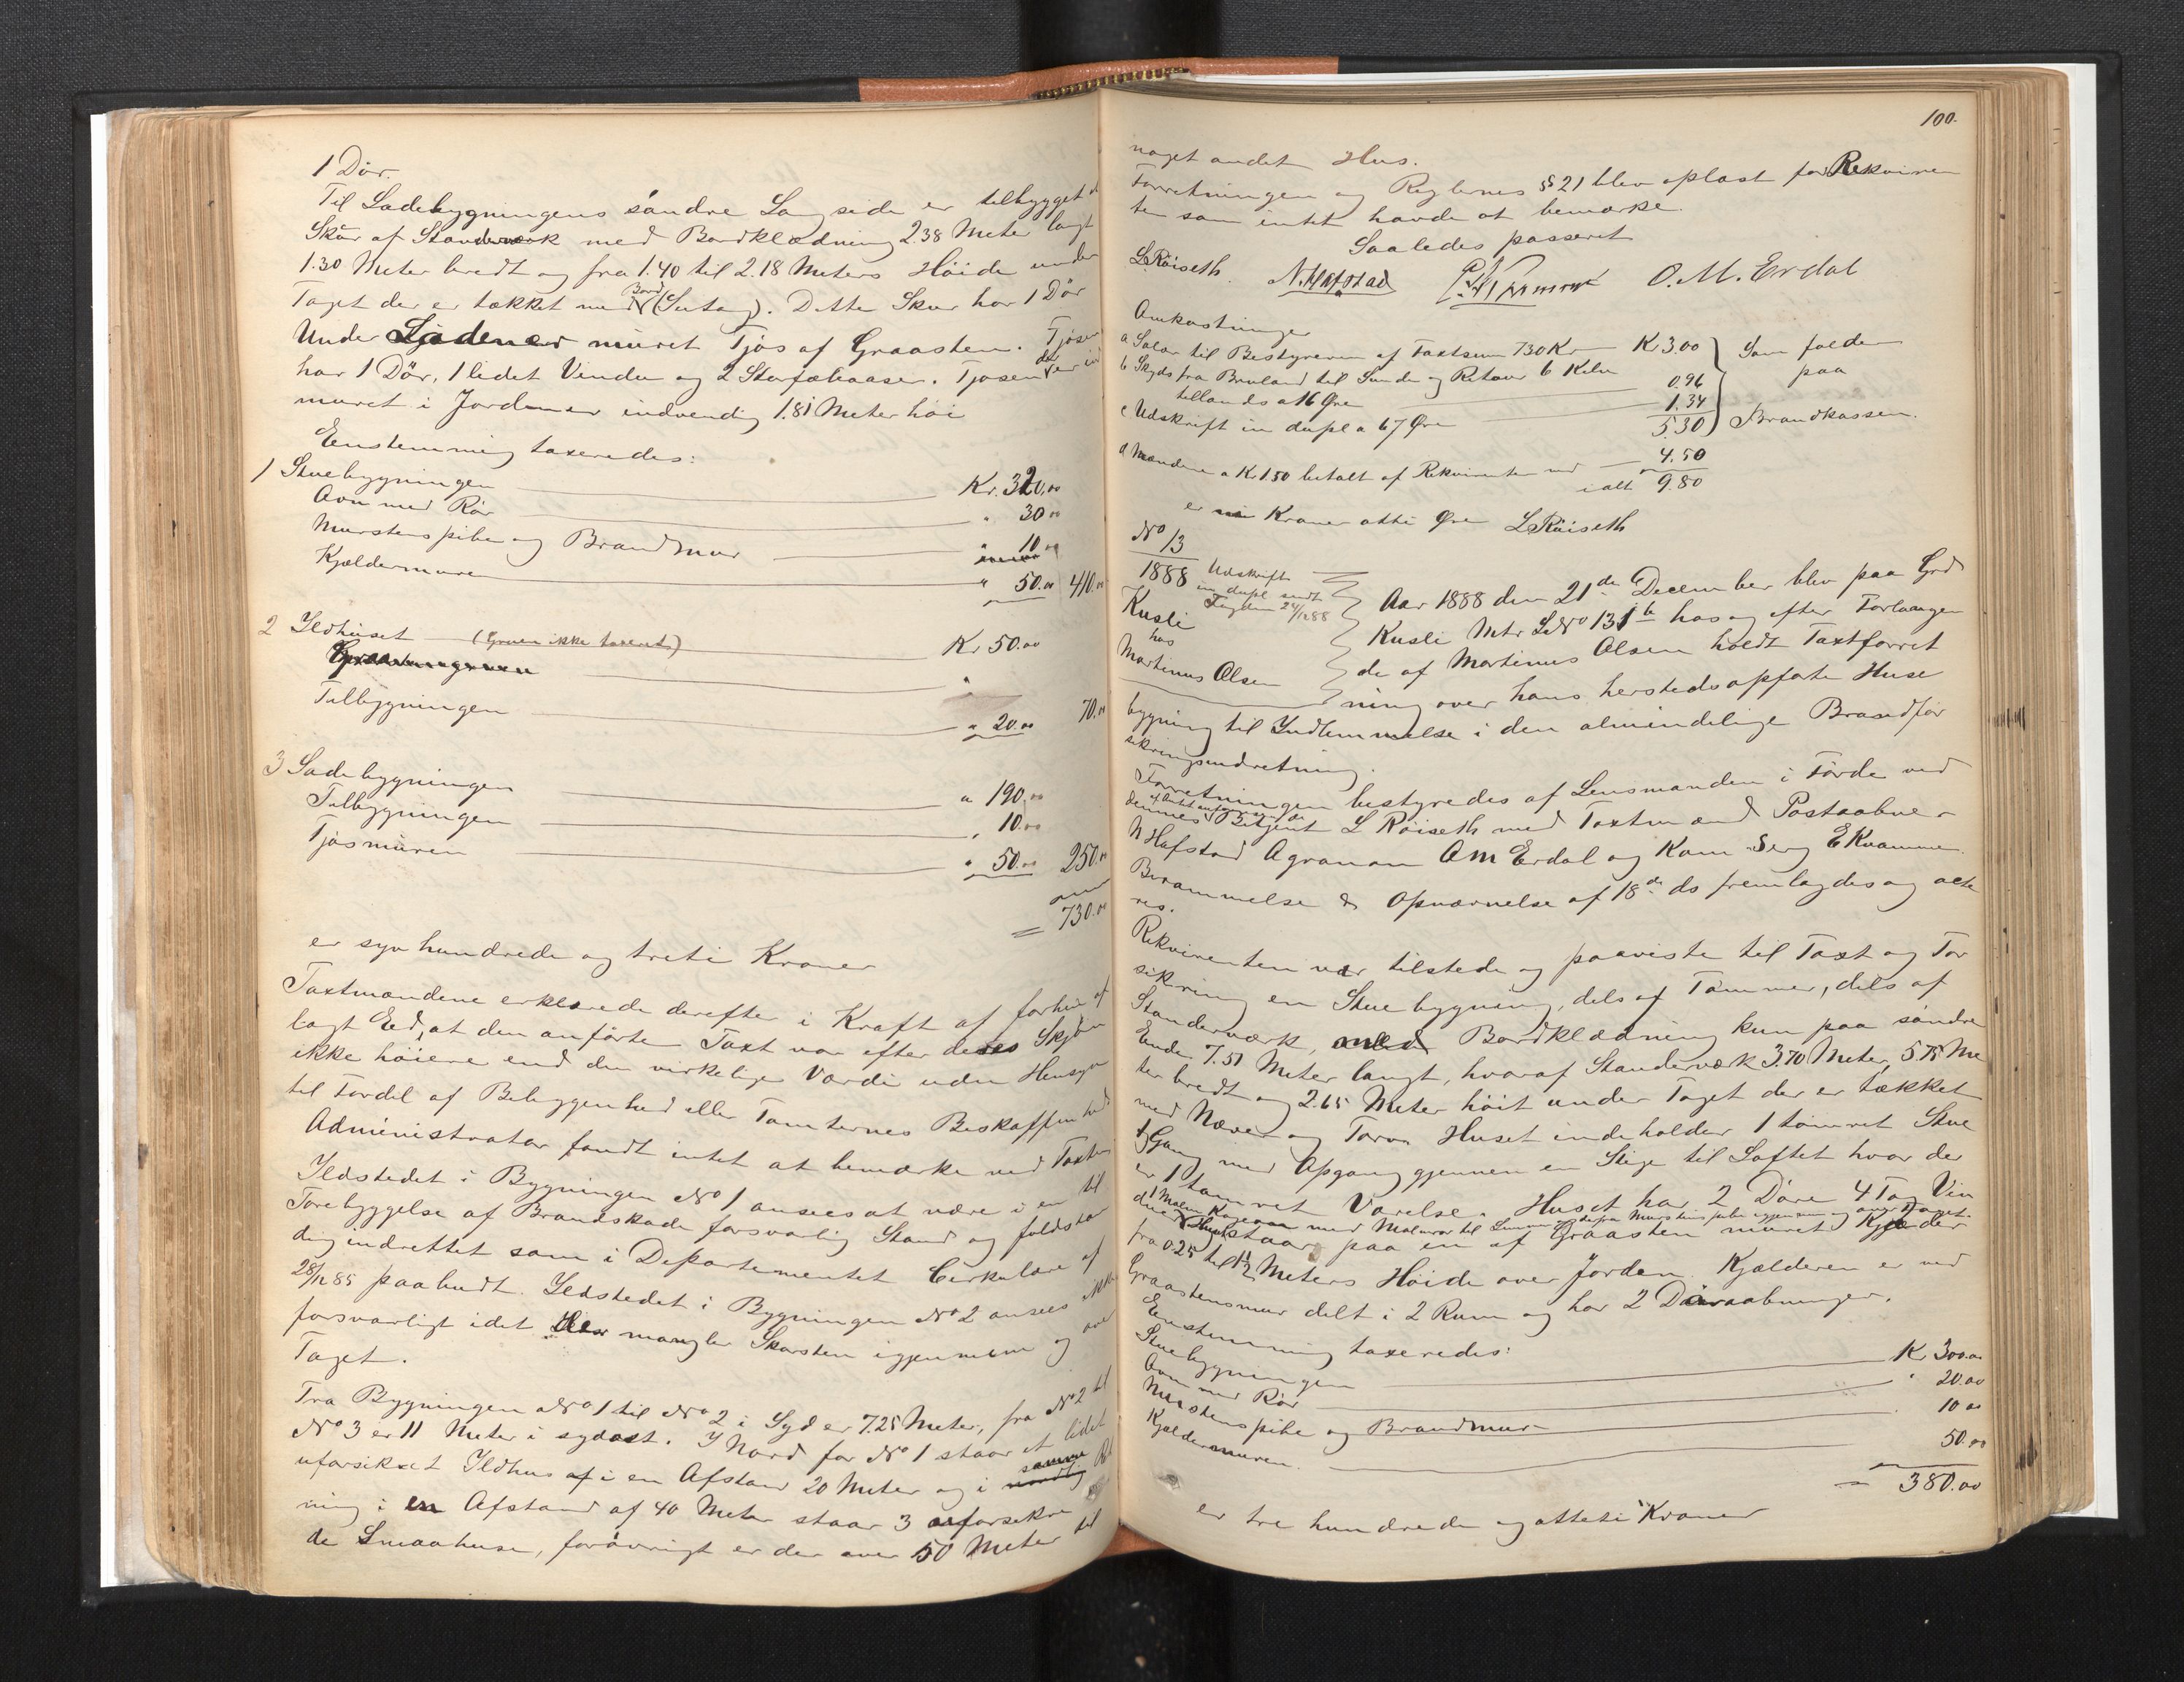 1 Dör.
Til Ladebygningens söndre Langside er tilbygget et
Skür af Standerværk med Bordklædning 2.38 Meter langt
1.30 Meter bredt og fra 1.40 til 2.18 Meters Höide under
Taget der er tækket med Bord (Sutag). Dette Skur har 1 Dör
Under Laden er müret Fjös af Graasten. Fjösen
har 1 Dör, 1 lidet Vindu og 2 Storfebaase. Fjösen der er ind
muret i Jorden er indvendig 1.81 Meter höi
Eenstemmig taxeredes:
1 Stuebygningen Kr. 320.00
Ovn med Rör " 30 00
Murstenspibe og Brandmur " 10 00
Kjældermuren " 50.00 410.00
2 Ildhüset (Gruen ikke taxeret) Kr 50.00
Tilbygningen " 20.00 70.00
3 Ladebygningen " 190.00
Tilbygningen " 10.00
Fjösmüren " 50.00 250.00
= 730.00
er syv hundrede og treti Kroner
Taxtmændene erklærede derefter i Kraft af forhen af
lagt Eed, at den anförte Taxt var efter deres Skjön
ikke höiere end den virkelige Værdi uden Hensyn
til Fordel af Beliggenhed eller Tomternes Beskaffenhed
Administrator fandt intet at bemærke ved Taxten
Ildstedet i Bygningen No 1 ansees at være i en til
Forebyggelse af Brandskade forsvarlig Stand og fuldstæn
dig indrettet som i Departementet Cirkulære af
28/12 85 paabudt. Ildstedet i Bygningen No 2 ansees ikke
forsvarligt idet der mangler Skorsten igjennem og over
Taget.
Fra Bygningen No 1 til No 2 i Syd er 7.25 Meter, fra No 2 til
No 3 er 11 Meter i sydost. I Nord for No 1 staar et lidet
uforsikret Ildhus i en Afstand 20 Meter og i samme Ret
ning i en Afstand af 40 Meter staar 3 uforsikre
de Smaahuse, forövrigt er der over 50 Meter til
100.
noget andet Hus.
Forretningen og Reglernes § 21 blev oplæst for Rekviren
ten som intet havde at bemærke.
Saaledes passeret
L Röiseth N. Hafstad O. M. Erdal
Omkostninger
a Salær til Bestyreren af Taxtsum 730 Kr Kr 3.00 Som falder
b Skyds fra Bruland til Sunde og Retour 6 Kilm paa
tillands a 16 Øre 0.96
c Udskrift in duplo a 67 Øre 1.34 Brandkassen.
5.30
d Mændene a Kr 1.50 betalt af Rekvirenten med 4.50
ialt 9.80
er ni Kroner otti Øre L Röiseth
No 13
1888 Udskrift
in dupl sendt
Fogden 24/12 88
Kusli
hos
Martinus Olsen
Aar 1888 den 21de December blev paa Grd
Kusli Mtr LNo 131 b hos og efter Forlangen
de af Martinus Olsen holdt Taxtforret
ning over hans herstedsopförte Huse
bygning til Indlemmelse i den almindelige Brandfor
sikringsindretning.
Forretningen bestyredes af Lensmanden i Förde ved
dennes af Amtet antagne Betjent L Röiseth med Taxtmænd Postaabner
N Hafstad Agronom O M Erdal og Kom Serg E Kvamme
Berammelse & Opnævnelse af 18de ds fremlagdes og acte
res.
Rekvirenten var tilstede og paaviste til Taxt og For
sikring en Stuebygning, dels af Tömmer, dels af
Standerværk, med Bordklædning kun paa söndre
Ende 7.51 Meter langt, hvoraf Standerværk 3.70 Meter, 5.75 Me
ter bredt og 2.65 Meter höit under Taget der er tækket
med Næver og Torv. Huset indeholder 1 tömret Stue
1 Gang med Opgang gjennem en Stige til Loftet hvor der
er 1 tömret Værelse. Huset har 2 Döre 4 Fag Vin
duer 1 Malm Kogeovn med Malmrör til Murstenspibe igjennem og over Taget.
Huset staar paa en af Graasten müret Kjelder
fra 0.25 til 1½ Meters Höide over Jorden. Kjælderen er ved
Graastensmur delt i 2 Rum og har 2 Döraabninger.
Eenstemmig taxeredes:
Stuebygningen Kr 300.00
Ovn med Rör " 20.00
Murstenspibe og Brandmur 10 00
Kjeldermuren. 50.00
= 380.00
er tre hundrede og otteti Kroner